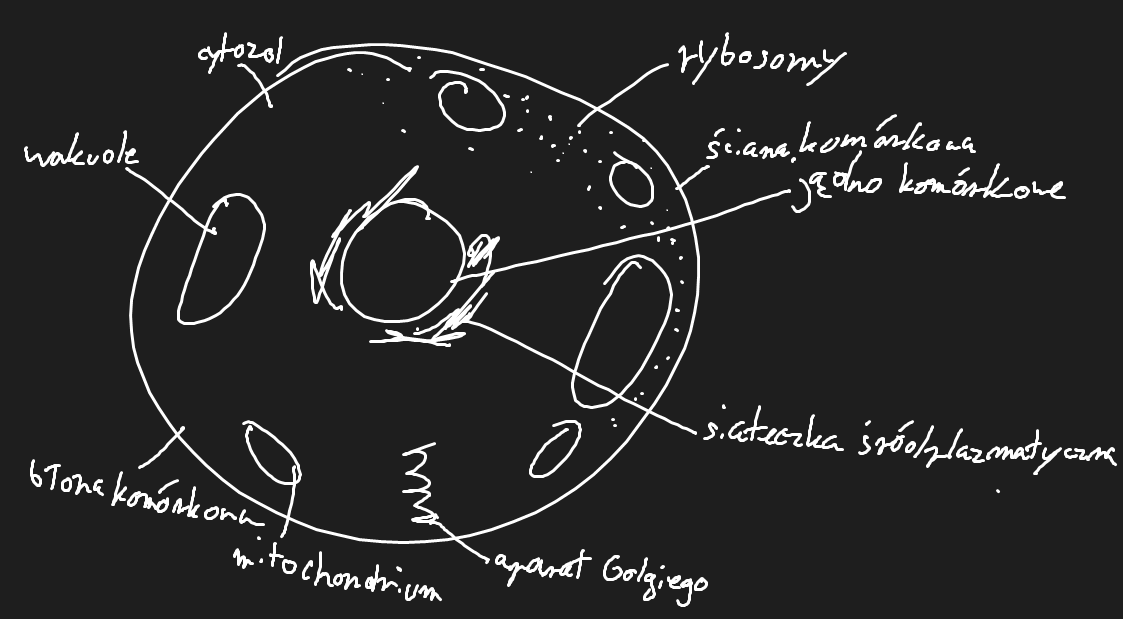 cytozol
rybosomy
ściana komórkowa
wakuole
jądro komórkowe
siateczka śródplazmatyczna
błona komórkowa
mitochondrium
aparat Golgiego